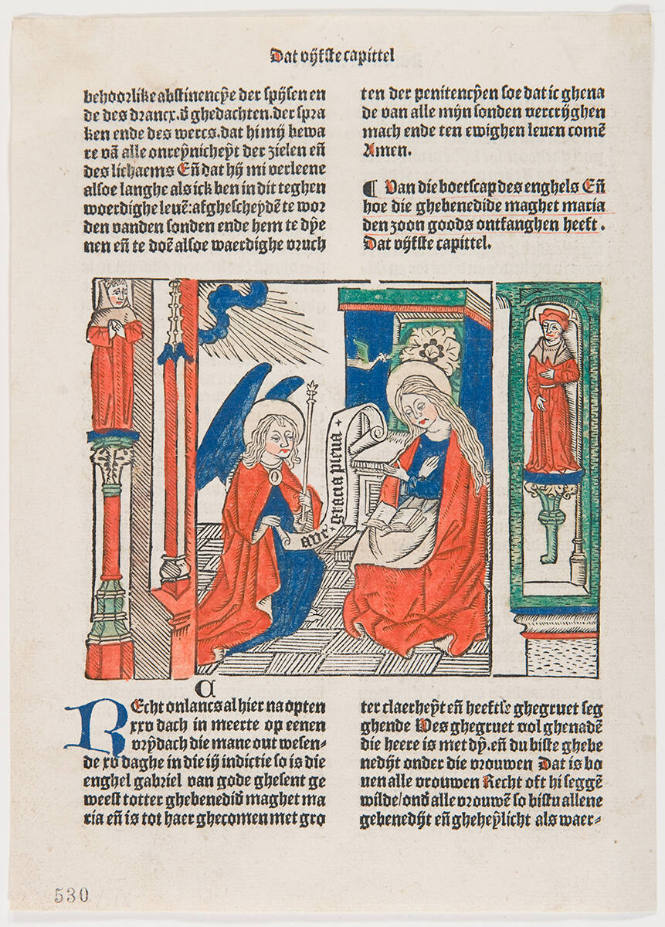 Dat vijfste capittel
behoorlike abstinencye der spijsen en
de des drancx. vā ghedachten. der spra
ken ende des wercs. dat hi mij bewa
re vā alle onreynicheyt der zielen eñ
des lichaems Eñ dat hij mi verleene
alsoe langhe als ick ben in dit teghen
woerdighe leuē: afghescheydē te wor
den vanden sonden ende hem te dye
nen eñ te doē alsoe waerdighe vruch
ten der penitencyen soe dat ic ghena
de van alle mijn sonden vercrijghen
mach ende ten ewighen leuen comē
Amen.
¶ Van die boetscap des enghels Eñ
hoe die ghebenedide maghet maria
den zoon goods ontfanghen heeft.
Dat vijfste capittel.
ave gracia plena
a
REcht onlancs al hier na opten
xxv dach in meerte op eenen
vrijdach die mane out wesen-
de xv daghe in die iij indictie so is die
enghel gabriel van gode ghesent ge
weest totter ghebenedid maghet ma
ria eñ is tot haer ghecomen met gro
ter claerheyt eñ heeftse ghegruet seg
ghende Wes ghegruet vol ghenadē
die heere is met dy. eñ du biste ghebe
nedijt onder die vrouwen Dat is bo
uen alle vrouwen Recht oft hi seggē
wilde/onđ alle vrouwē so bistu allene
gebenedijt eñ gheheylicht als waer-
530